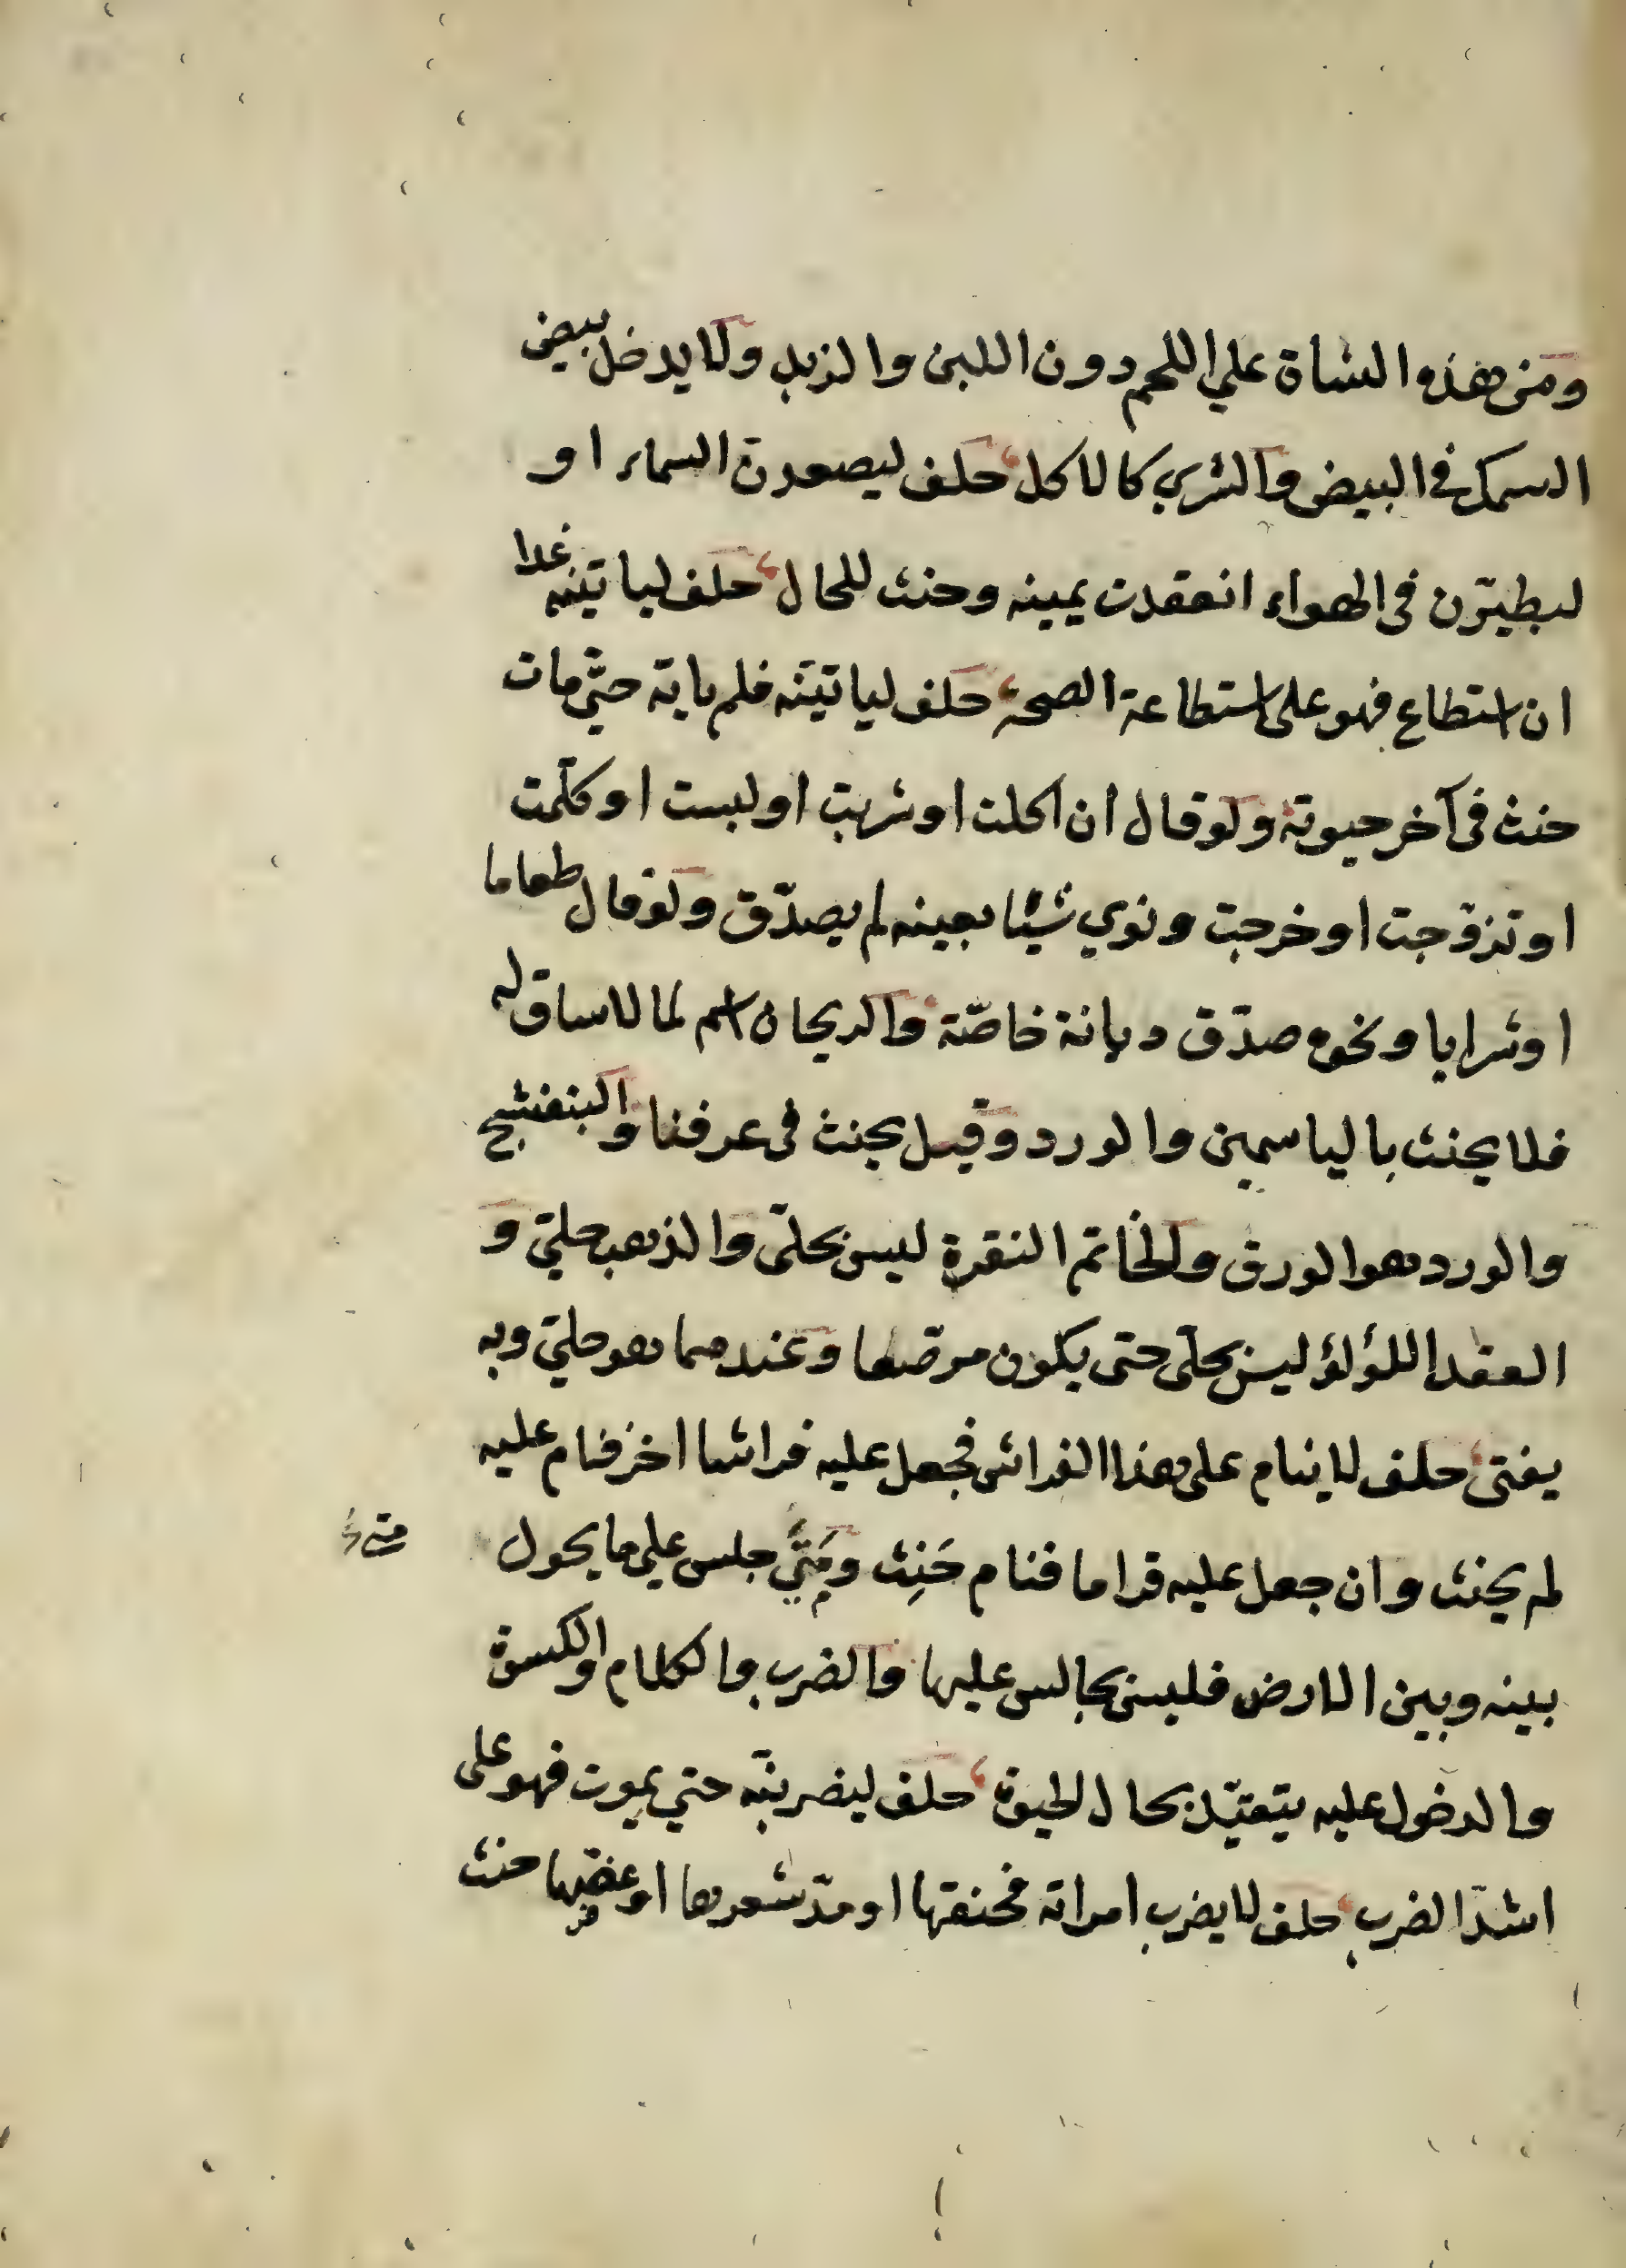 ومن هذه الشاة على اللحم دون اللبن والزبد ولا يدخل بيض
السمك في البيض والشري كالاكل حلف ليصعدن السماء او
ليطيرن في الهواء انعقدت يمينه وحنث للحال حلف لياتينه غدا
ان استطاع فهو على استطاعة الصحة حلف لياتينه فلم ياته حتي مات
حنث في آخر حيوته ولو قال ان اكلت او شربت او لبست او كلّمت
او تزوّجت او خرجت ونوي شيئا بعينه لم يصدّق ولو قال طعاما
او شرابا ونحوه صدّق ديانة خاصّة والريحان اسم لما لا ساق له
فلا يحنث بالياسمين والورد وقيل يحنث في عرفنا والبنفسج
والورد هو الورق والخاتم النقرة ليس بحلّي والذهب حليّ و
العقد اللؤلؤ ليس بحلّي حتى يكون مرصّعا وعندهما هو حليّ وبه
يفتى حلف لا ينام على هذا الفراش فجعل عليه فراشا اخر فنام عليه
لم يحنث وان جعل عليه قراما فنام حَنِث ومَتَي جلس علي ما يحول
بينه وبين الارض فليس بجالس عليها والضرب والكلام والكسوة
والدخول عليه يتقيّد بحال الحيوة حلف ليضربنّه حتي يموت فهو على
اشدّ الضرب حلف لا يضرب امراته فخنقها او مدّ شعرها او عضّها حنث